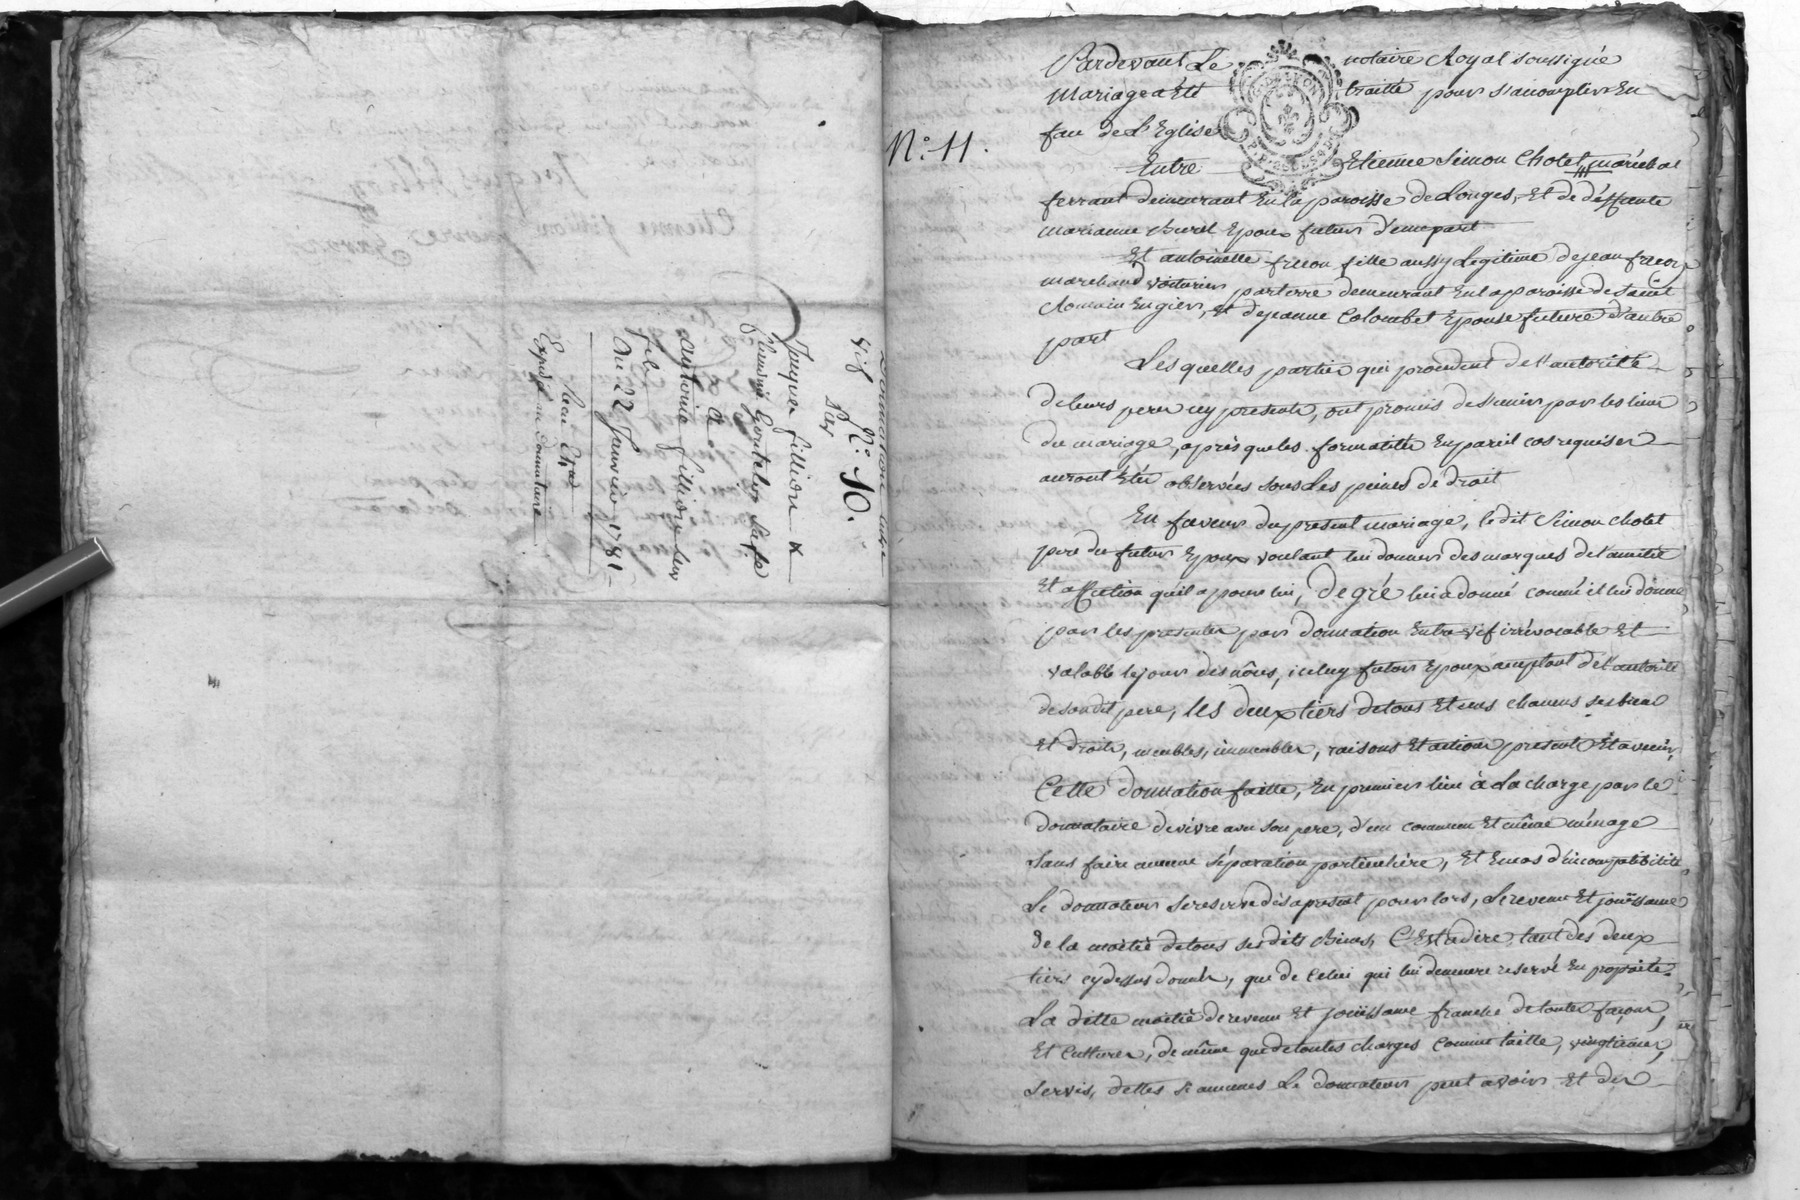 Donnation entre
vif
N.° 10.
Par
Jacques fillion &
Claudine Gontelin sa fe
à
antoine fillion leur
fils
Du 22 Janvier 1781
Expédié au Donnataire
N.° 11.
Pardevant Le notaire Royal soussigné
Mariage a Eté traitté pour s'accomplir En
face de L'Eglise
Entre Etienne Simon Chotel, maréchal
ferrant demeurant En la paroisse de Longes, Et de déffunte
marianne Buret Epoux futur d'une part
Et antoinette frecon fille aussy Legitime de jean frecon
marchand voiturier par terre demeurant En la paroisse de Saint
Romain En giers, Et de jeanne Colombet Epouse future d'autre
part
Les quelles parties qui procedent de l'autorité
de leurs peres icy presents, ont promis de s'unir par les liens
du mariage, après que les formalités En pareil cas requises
auront Eté observées sous Les peines de droit
En faveur du present mariage, le dit Simon Chotel
pere du futur Epoux voulant lui donner des marques de l'amitié
Et affection qu'il a pour lui, de gré lui a donné comme il lui donne
par les presentes par donnation Entre vif irrévocable Et
valable le jour des nôces, iceluy futur Epoux acceptant de l'autorité
de son dit pere, les deux tiers de tous Et uns chacuns ses biens
Et droits, meubles, immeubles, raisons Et actions presents Et avenir,
Cette donnation faitte, En premier lieu à La charge par le
donnataire de vivre avec son pere, d'un commun Et même ménage
sans faire aucune séparation particulière, Et En cas d'incompatibilité
Le donnateur se reserve dès a present pour lors, Le revenu Et jouissance
de la moitié de tous ses dits Biens, C'Est a dire, tant des deux
tiers cy dessus donnés, que de Celui qui lui demeure reservé En propriété.
La ditte moitié de revenu Et jouissance franche de toutes façons
Et Cultures, de même que de toutes charges Comme taille, vingtiemes,
servis, dettes si aucunes Le donnateur peut avoir Et des